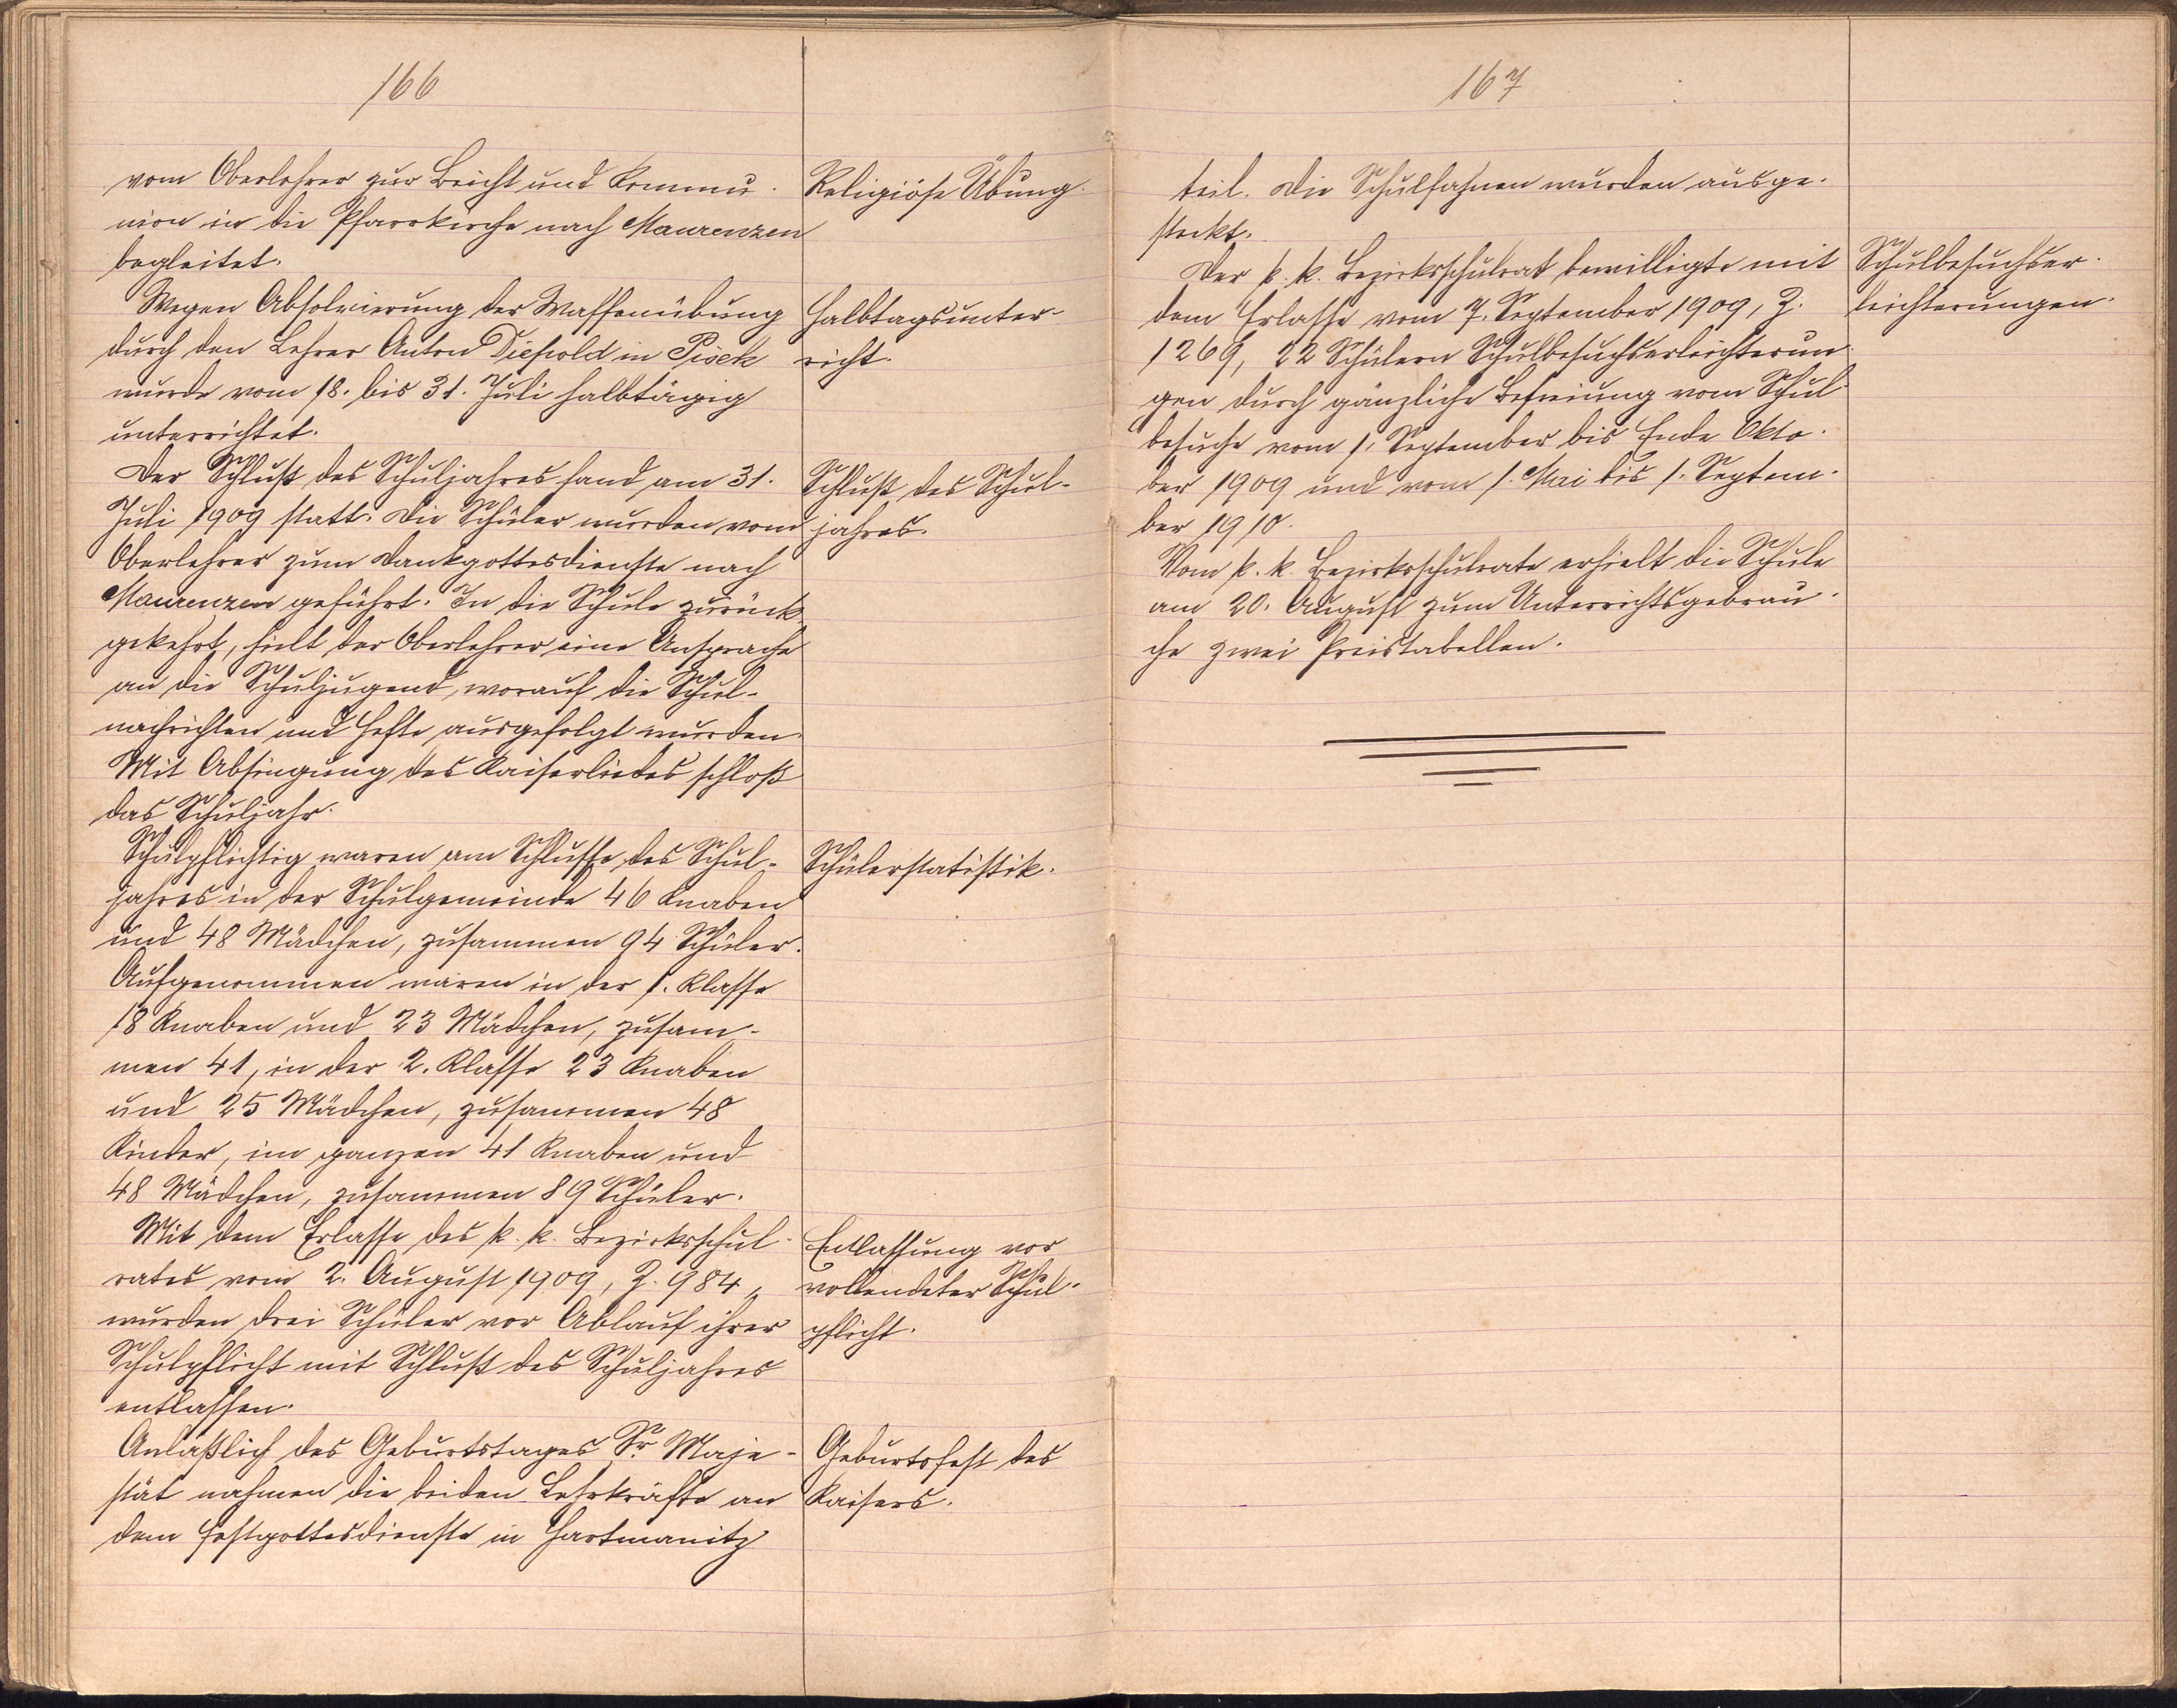 166
vom Oberlehrer zur Beicht und Kommu-
nion in die Pfarrkirche nach Maurenzen
begleitet.
Religiöse Übung.
Wegen Absolvierung der Waffenübung
durch den Lehrer Anton Diepold in Pisek
wurde vom 18. bis 31. Juli halbtägig
unterrichtet.
Halbtagsunter-
richt.
Der Schluß des Schuljahres fand am 31.
Juli 1909 statt. Die Schüler wurden vom
Oberlehrer zum Dankgottesdienste nach
Maurenzen geführt. In die Schule zurück-
gekehrt, hielt der Oberlehrer eine Ansprache
an die Schuljugend, worauf die Schul-
nachrichten und Hefte ausgefolgt wurden.
Mit Absingung des Kaiserliedes schloß
das Schuljahr.
Schluß des Schul-
jahres.
Schulpflichtig waren am Schlusse des Schul-
jahres in der Schulgemeinde 46 Knaben
und 48 Mädchen, zusammen 94 Schüler.
Aufgenommen waren in der 1. Klasse
18 Knaben und 23 Mädchen, zusam-
men 41, in der 2. Klasse 23 Knaben
und 25 Mädchen, zusammen 48
Kinder, im ganzen 41 Knaben und
48 Mädchen, zusammen 89 Schüler.
Schülerstatistik.
Mit dem Erlasse des k. k. Bezirksschul-
rates vom 2. August 1909, Z. 984,
wurden drei Schüler vor Ablauf ihrer
Schulpflicht mit Schluß des Schuljahres
entlassen.
Entlassung vor
vollendeter Schul-
pflicht.
Anläßlich des Geburtstages Sr. Maje-
stät nahmen die beiden Lehrkräfte an
dem Festgottesdienste in Hartmanitz
Geburtsfest des
Kaisers.
167
teil. Die Schulfahnen wurden ausge-
steckt.
Der k. k. Bezirksschulrat bewilligte mit
dem Erlasse vom 7. September 1909, Z.
1269, 22 Schülern Schulbesuchserleichterun-
gen durch gänzliche Befreiung vom Schul-
besuche vom 1. September bis Ende Okto-
ber 1909 und vom 1. Mai bis 1. Septem-
ber 1910.
Schulbesuchser-
leichterungen.
Vom k. k. Bezirksschulrate erhielt die Schule
am 20. August zum Unterrichtsgebrau-
che zwei Preistabellen.